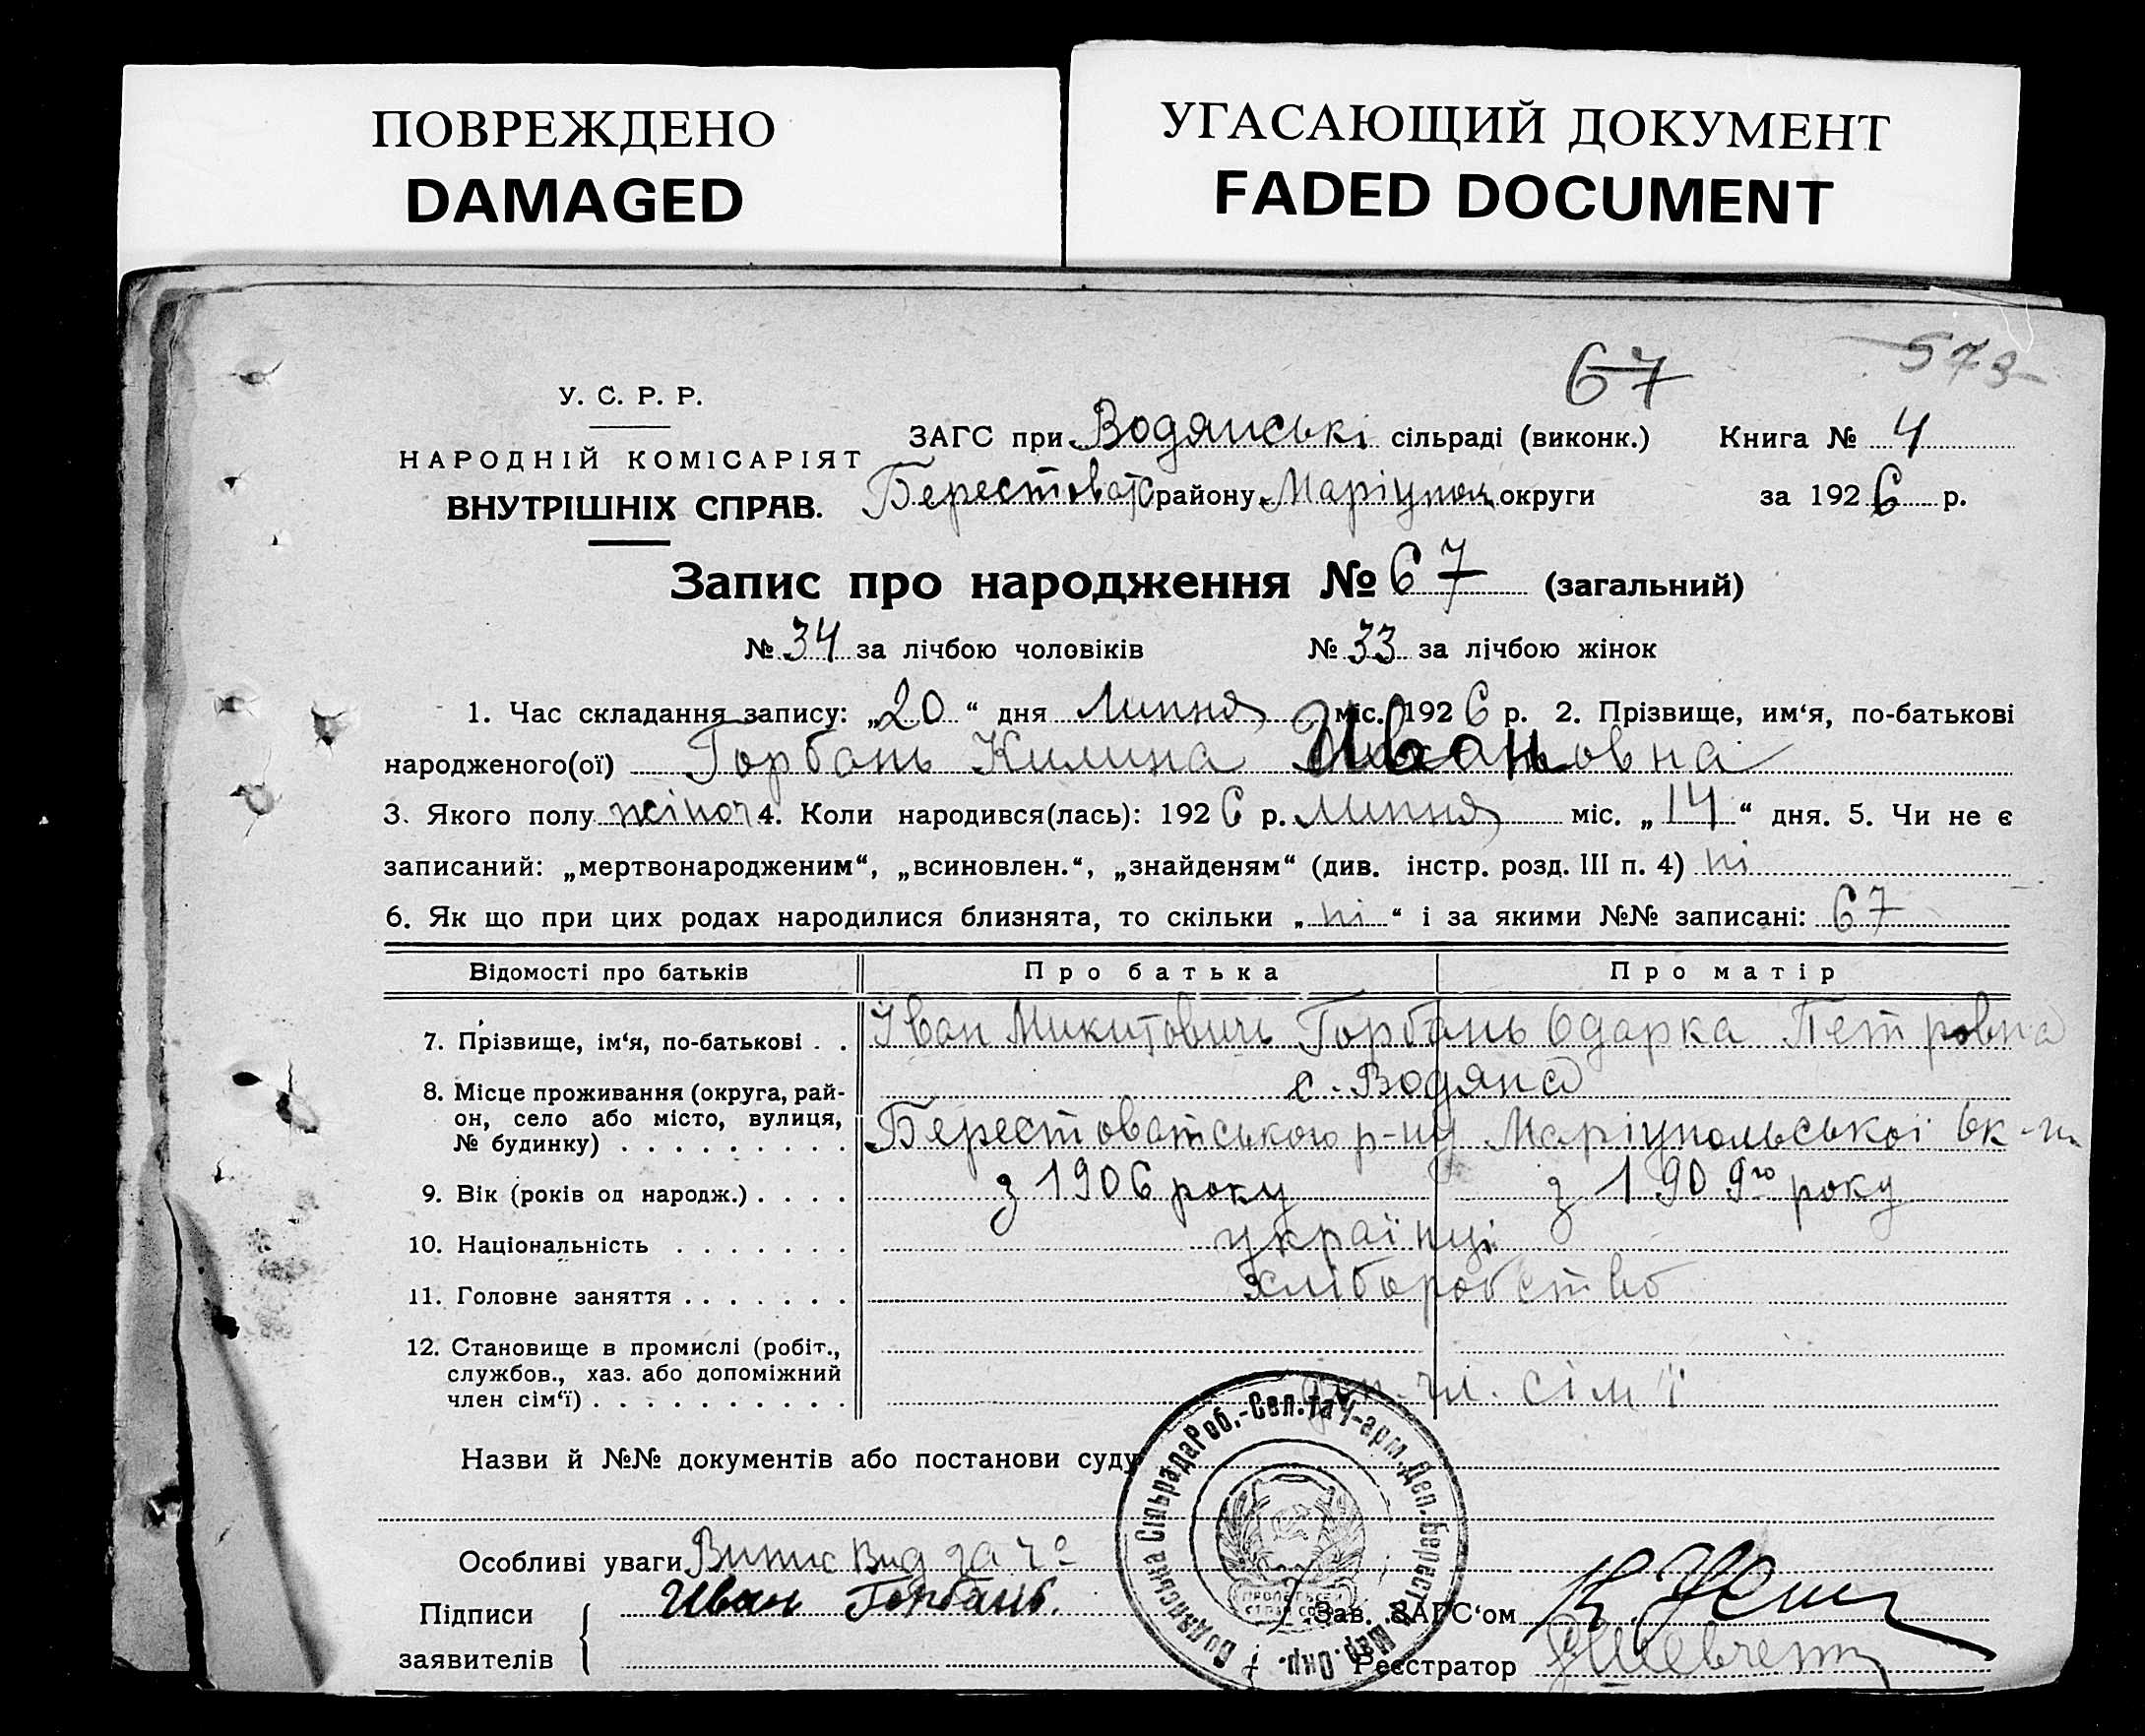 ПОВРЕЖДЕНО
DAMAGED
УГАСАЮЩИЙ ДОКУМЕНТ
FADED DOCUMENT
67
573
У. С. Р. Р.
НАРОДНІЙ КОМІСАРІЯТ
ВНУТРІШНІХ СПРАВ.
ЗАГС при Водянські сільраді (виконк.) Книга № 4
Берестоват району Маріупол округи за 1926 р.
Запис про народження № 67 (загальний)
№ 34 за лічбою чоловіків № 33 за лічбою жінок
1. Час складання запису: „20“ дня Липня міс. 1926 р. 2. Прізвище, им‘я, по-батькові
народженого(ої) Горбань Килина Ивановна
3. Якого полу жіноч 4. Коли народився(лась): 1926 р. Липня міс. „14“ дня. 5. Чи не є
записаний: „мертвонародженим“, „всиновлен.“, „знайденям“ (див. інстр. розд. III п. 4) ні
6. Як що при цих родах народилися близнята, то скільки „ні“ і за якими №№ записані: 67
Відомості про батьків Про батька Про матір
7. Прізвище, ім‘я, по-батькові . . Іван Микитовичь Горбань Одарка Петровна
8. Місце проживання (округа, рай- с. Водяна
он, село або місто, вулиця,
№ будинку) . . . . . . . . . Берестоватського р-ну Маріупольської Ок-и
9. Вік (років од народж.) . . . . з 1906 року з 1909го року
10. Національність . . . . . . . українці
11. Головне заняття . . . . . . . хліборобство
12. Становище в промислі (робіт.,
службов., хаз. або допоміжний
член сім‘ї) . . . . . . . . . . доп. чл. сім'ї
Назви й №№ документів або постанови суду
Особливі уваги Випис вид за ч°
Підписи Иван Горбань.
заявителів
Зав. ЗАГС‘ом
Реєстратор Шевченко
Водянська Сільрада Роб.-Сел. та Ч-арм. Деп. Берест. Мар. Окр.